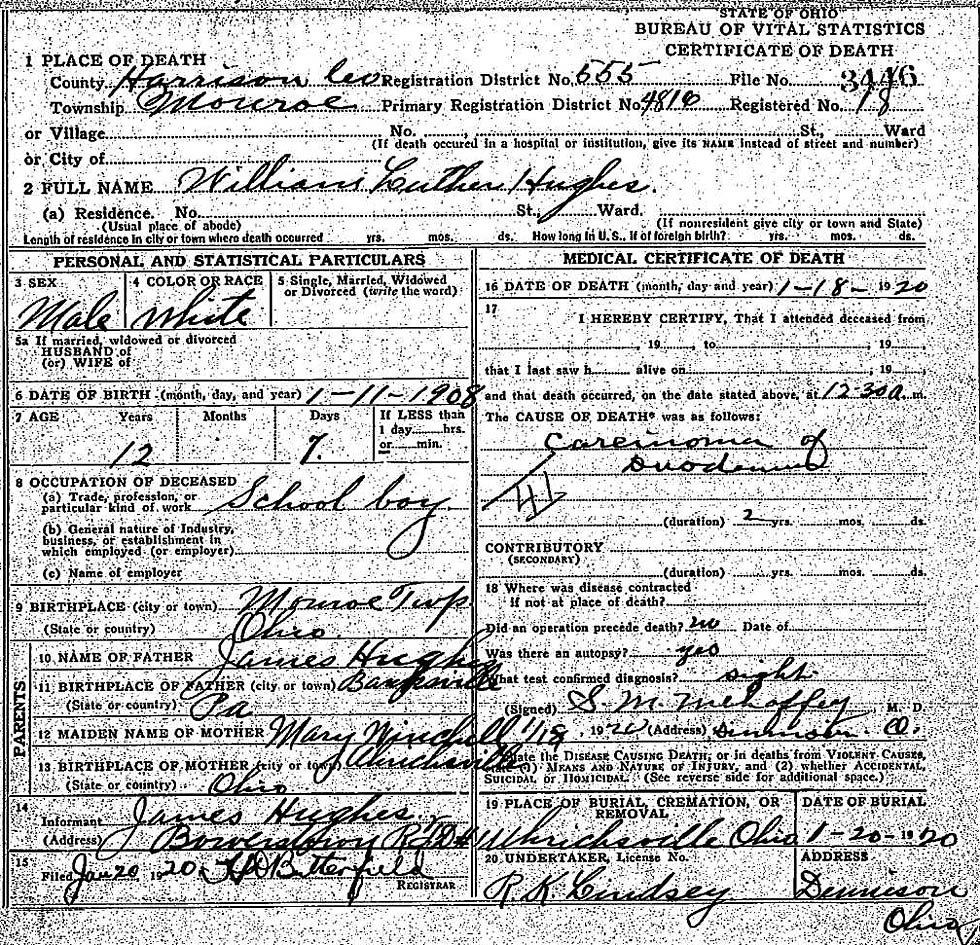 STATE OF OHIO
BUREAU OF VITAL STATISTICS
CERTIFICATE OF DEATH
1 PLACE OF DEATH
County Harrison Registration District No. 555 File No. 3446
Township Monroe Primary Registration District No. 4816 Registered No. 18
or Village No. St., Ward
(If death occured in a hospital or institution, give its NAME instead of street and number)
or City of
2 FULL NAME William Luther Hughes.
(a) Residence. No. St., Ward.
(Usual place of abode) (If nonresident give city or town and State)
Length of residence in city or town where death occurred yrs. mos. ds. How long in U.S., if of foreign birth? yrs. mos. ds.
PERSONAL AND STATISTICAL PARTICULARS
3 SEX 4 COLOR OR RACE 5 Single, Married, Widowed
or Divorced (write the word)
Male White
5a If married, widowed or divorced
HUSBAND of
(or) WIFE of
6 DATE OF BIRTH (month, day, and year) 1-11-1908
7 AGE Years Months Days If LESS than
1 day hrs.
or min.
12 7.
8 OCCUPATION OF DECEASED
(a) Trade, profession, or
particular kind of work School boy.
(b) General nature of Industry,
business, or establishment in
which employed (or employer)
(c) Name of employer
9 BIRTHPLACE (city or town) Monroe Twp.
(State or country) Ohio.
PARENTS
10 NAME OF FATHER James Hughes
11 BIRTHPLACE OF FATHER (city or town)
(State or country) Pa
12 MAIDEN NAME OF MOTHER Mary
13 BIRTHPLACE OF MOTHER (city or town) Uhrichsville
(State or country) Ohio
14
Informant James Hughes
(Address) Bowerstown
15
Filed Jan 20, 1920 Butterfield
REGISTRAR
MEDICAL CERTIFICATE OF DEATH
16 DATE OF DEATH (month, day and year) 1-18-1920
17
I HEREBY CERTIFY, That I attended deceased from
, 19 , to , 19
that I last saw h alive on , 19
and that death occurred, on the date stated above, at 12-30 a. m.
The CAUSE OF DEATH* was as follows:
Carcinoma of
Duodenum
41
(duration) 2 yrs. mos. ds.
CONTRIBUTORY
(SECONDARY)
(duration) yrs. mos. ds.
18 Where was disease contracted
if not at place of death?
Did an operation precede death? no Date of
Was there an autopsy? yes
What test confirmed diagnosis? sight
(Signed) S. M. Mehaffey, M. D.
1/18, 1920 (Address) Dennison O.
state the DISEASE CAUSING DEATH, or in deaths from VIOLENT CAUSES,
state (1) MEANS AND NATURE OF INJURY, and (2) whether ACCIDENTAL,
SUICIDAL, or HOMICIDAL. (See reverse side for additional space.)
19 PLACE OF BURIAL, CREMATION, OR
REMOVAL DATE OF BURIAL
Uhrichsville Ohio 1-20-1920
20 UNDERTAKER, License No. ADDRESS
R. K. Lindsey Dennison
Ohio